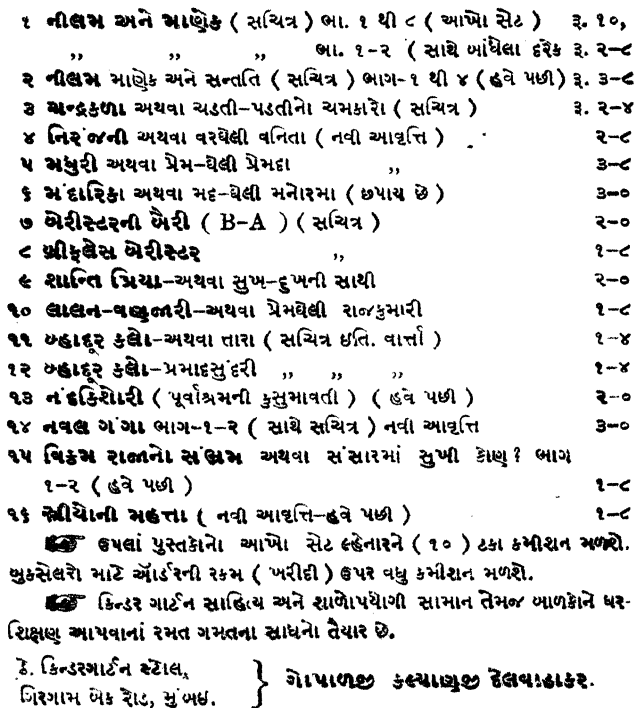 ૧ નીલમ અને માણેક ( સચિત્ર ) ભા. ૧ થી ૮ ( આખો સેટ ) રૂ. ૧૦,
,, ,, ,, ભા. ૧-૨ ( સાથે બાંધેલા દરેક રૂ. ૨-૮
૨ નીલમ માણેક અને સન્તતિ ( સચિત્ર ) ભાગ-૧ થી ૪ ( હવે પછી ) રૂ. ૩-૮
૩ ચન્દ્રકળા અથવા ચડતી-પડતીનો ચમકારો ( સચિત્ર ) રૂ. ૨-૪
૪ નિરંજની અથવા વરઘેલી વનિતા ( નવી આવૃત્તિ ) ૨-૮
૫ મધુરી અથવા પ્રેમ-ઘેલી પ્રેમદા ,, ૩-૮
૬ મંદારિકા અથવા મદ-ઘેલી મનોરમા ( છપાય છે ) ૩-૦
૭ બેરીસ્ટરની બૈરી ( B-A ) ( સચિત્ર ) ૨-૦
૮ બ્રીફલેસ બેરીસ્ટર ,, ૧-૮
૯ શાન્તિ પ્રિયા-અથવા સુખ-દુખની સાથી ૨-૦
૧૦ લાલન-વણજારી-અથવા પ્રેમઘેલી રાજકુમારી ૧-૮
૧૧ બ્હાદૂર કલો-અથવા તારા ( સચિત્ર ઇતિ. વાર્ત્તા ) ૧-૪
૧૨ બ્હાદૂર કલો-પ્રમાદસુંદરી ,, ,, ,, ૧-૪
૧૩ નંદકિશોરી ( પૂર્વાશ્રમની કુસુમાવતી ) ( હવે પછી ) ૨-૦
૧૪ નવલ ગંગા ભાગ-૧-૨ ( સાથે સચિત્ર ) નવી આવૃત્તિ ૩-૦
૧૫ વિક્રમ રાજાનો સંભ્રમ અથવા સંસારમાં સુખી કોણ ? ભાગ
૧-૨ ( હવે પછી ) ૧-૮
૧૬ સ્ત્રીયોની મહત્તા ( નવી આવૃત્તિ-હવે પછી ) ૧-૮
☞ ઉપલાં પુસ્તકોનો આખો સેટ લ્હેનારને ( ૧૦ ) ટકા કમીશન મળશે.
બુકસેલરો માટે ઑર્ડરની રકમ ( ખરીદી ) ઉપર વધુ કમીશન મળશે.
☞ કિન્ડર ગાર્ટન સાહિત્ય અને શાળોપયોગી સામાન તેમજ બાળકોને ઘર-
શિક્ષણ આપવાનાં રમત ગમતના સાધનો તૈયાર છે.
ઠે. કિન્ડરગાર્ટન સ્ટોલ,
ગિરગામ બેક રોડ, મુંબઇ. } ગોપાળજી કલ્યાણજી દેલવાડાકર.